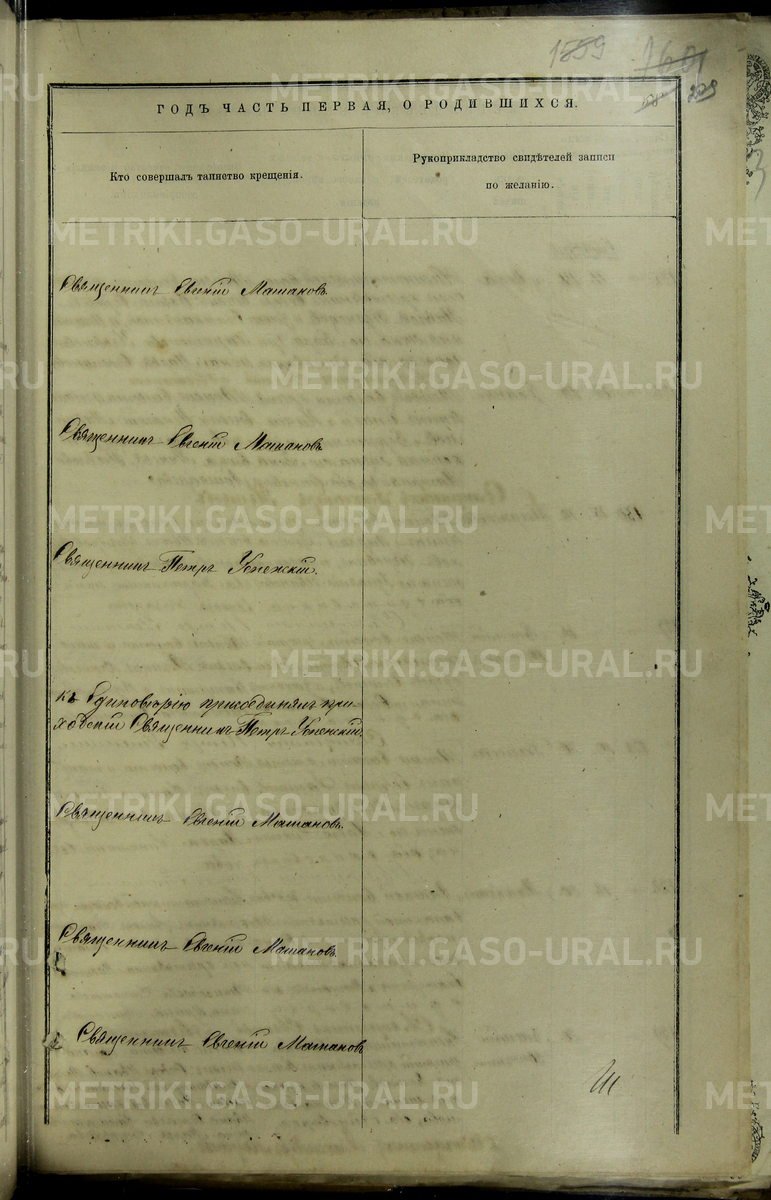 1859
229
ГОДЪ ЧАСТЬ ПЕРВАЯ, О РОДИВШИХСЯ.
Кто совершалъ таинство крещенія.
Рукоприкладство свидѣтелей записи
по желанію.
Священникъ Евгеній Матановъ.
Священникъ Евгеній Матановъ
Священникъ Петръ Успенскій.
къ Единовѣрію присоединялъ при-
ходскій Священникъ Петръ Успенскій.
Священникъ Евгеній Матановъ.
Священникъ Евгеній Матановъ.
Священникъ Евгеній Матановъ
METRIKI.GASO-URAL.RU